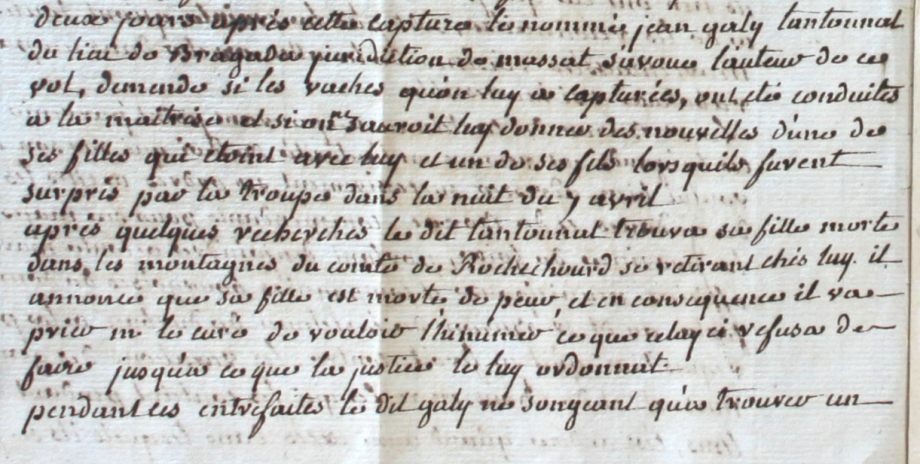 deux jours après cette capture le nommé jean galy tantonnat
du lieu de Bragade juridiction de massat s'avoue l'auteur de ce
vol, demande si les vaches qu'on luy a capturées, ont été conduites
a la maitrise et si on sauroit luy donner des nouvelles d'une de
ses filles qui étoint avec luy et un de ses fils lorsquils furent
surpris par la troupe dans la nuit du 7 avril
après quelques recherches le dit tantounat trouva sa fille morte
dans les montagnes du comte de Rochechouard se retirant chés luy. il
annonce que sa fille est morte de peur, et en consequence il va
prier mr le curé de vouloir l'hinumer, ce que celuy ci refusa de
faire jusqu'a ce que la justice le luy ordonnat.
pendant ces entrefaites le dit galy ne songeant qu'a trouver un